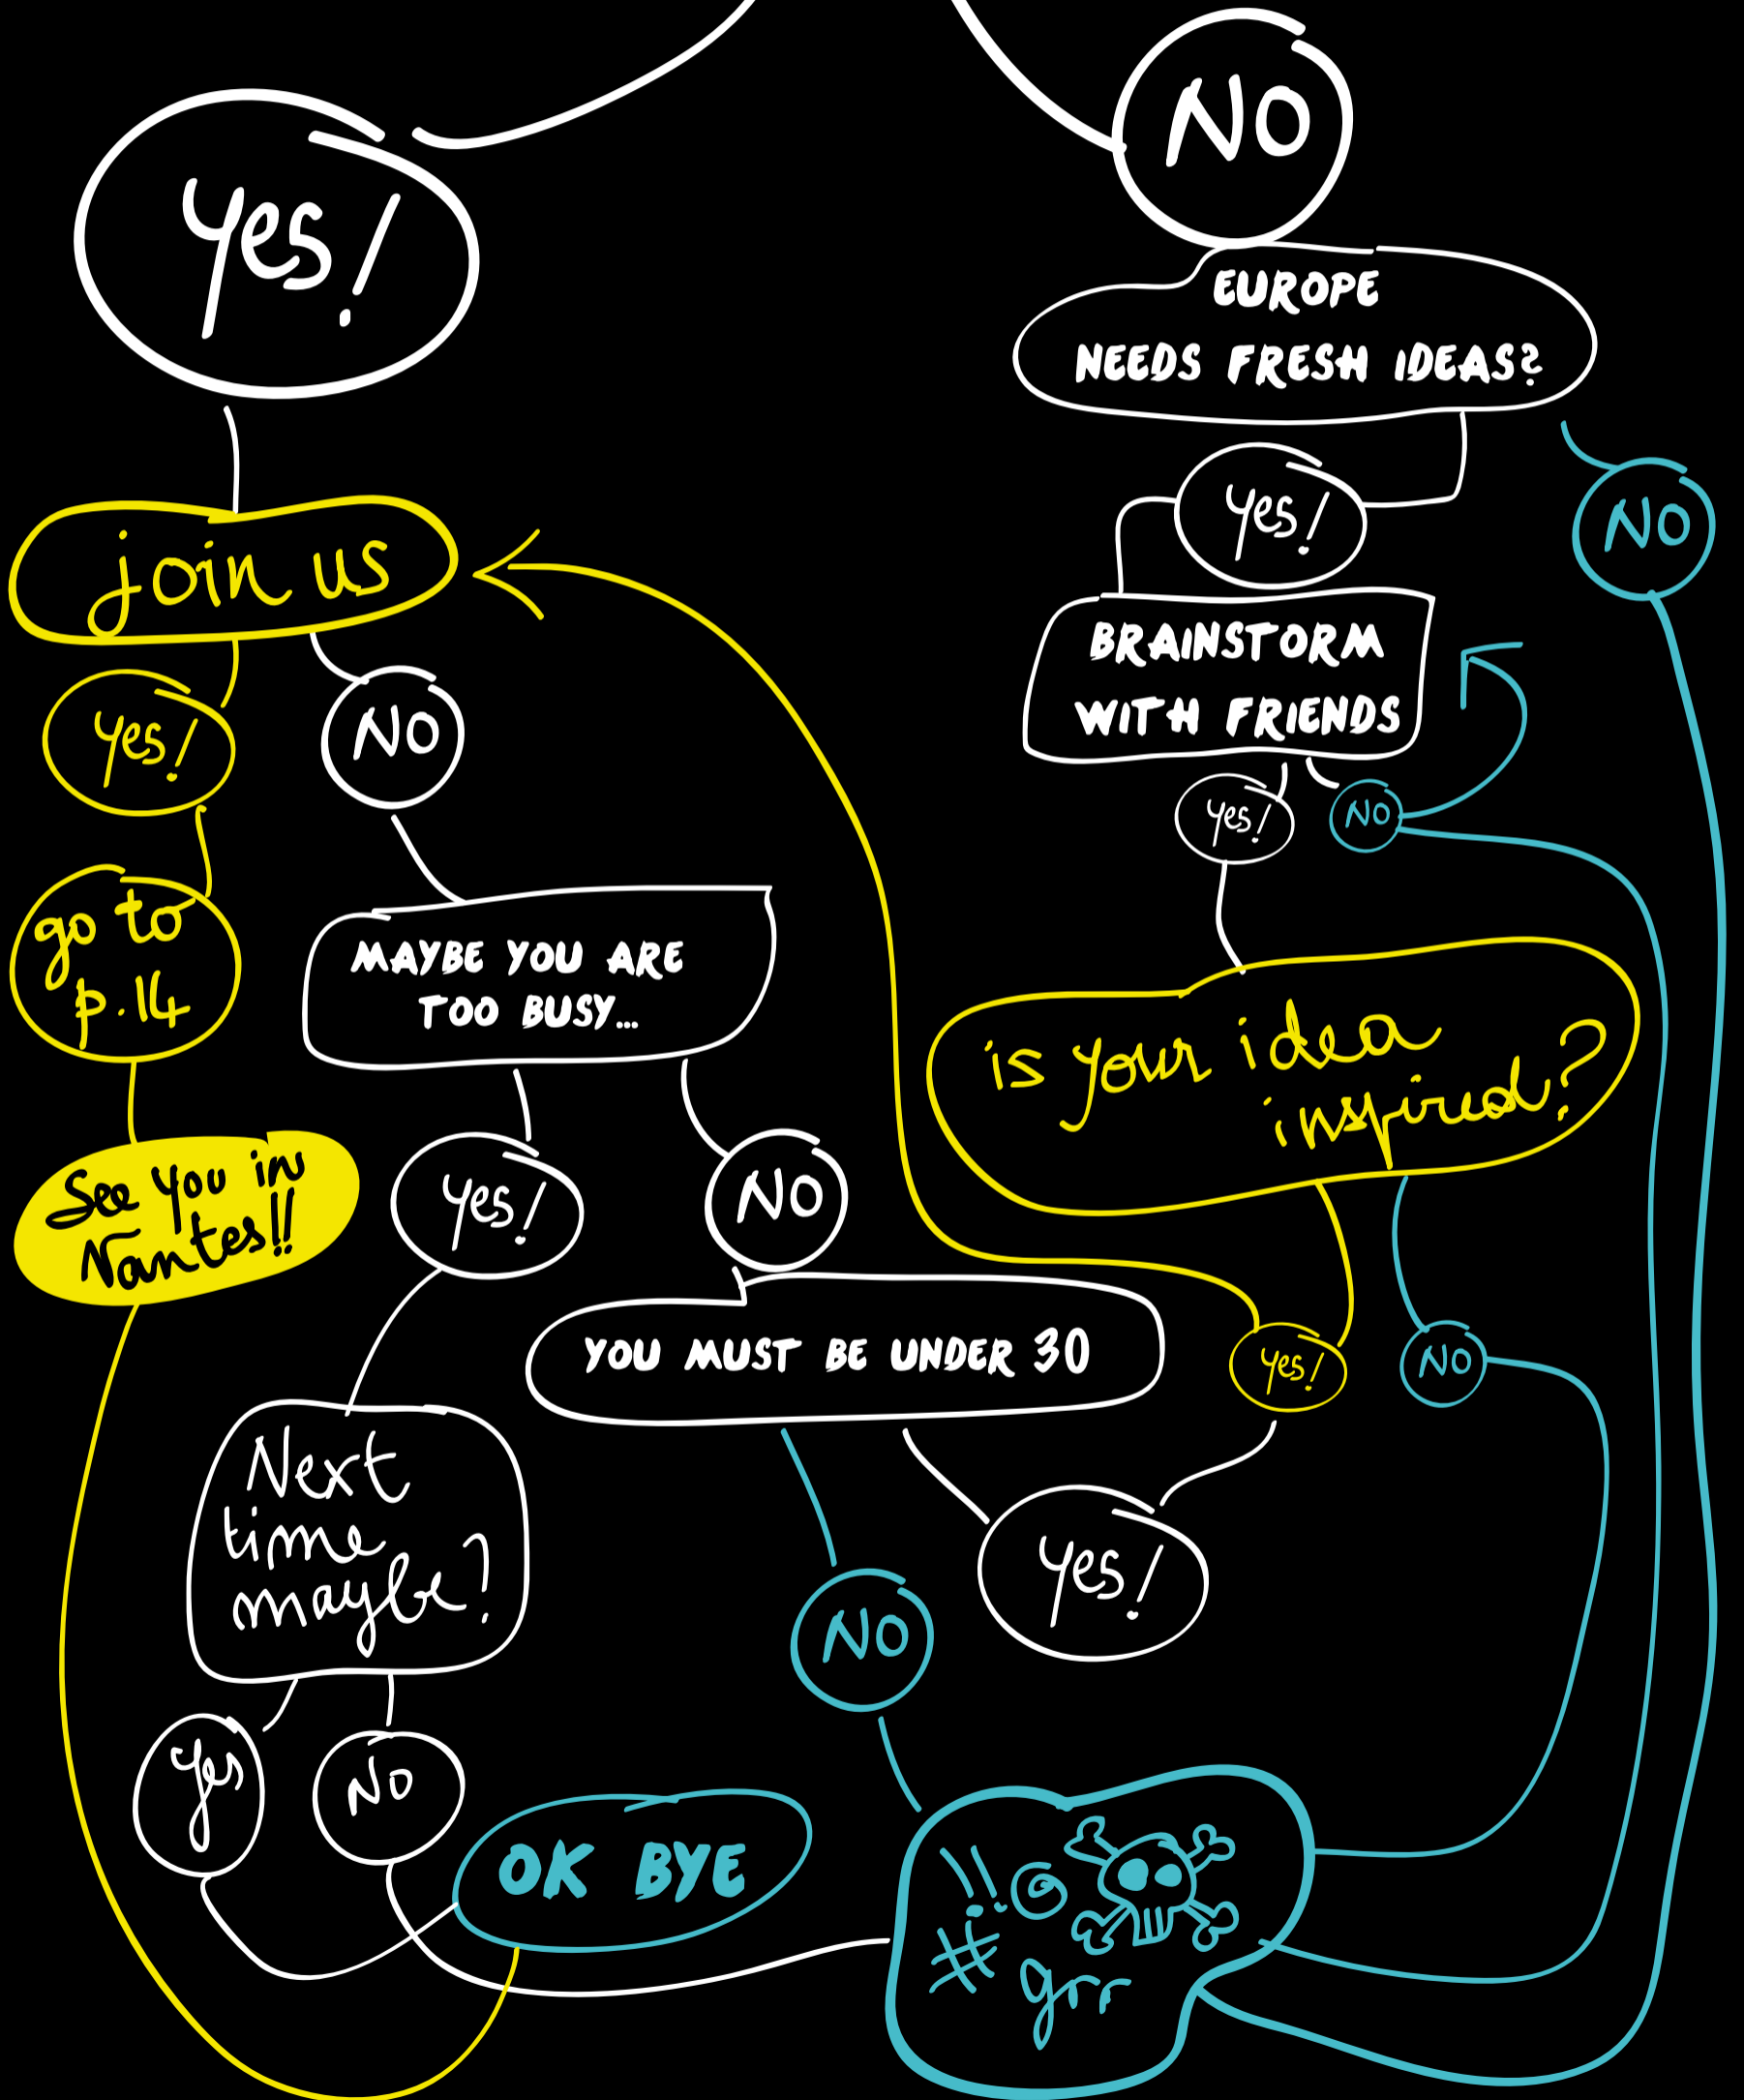 NO
Yes!
EUROPE
NEEDS FRESH IDEAS?
Yes!
NO
join us
BRAINSTORM
WITH FRIENDS
Yes!
NO
Yes!
NO
go to
p.14
MAYBE YOU ARE
TOO BUSY...
is your idea
inspired?
See you in
Nantes!!
Yes!
NO
YOU MUST BE UNDER 30
Yes!
NO
Next
time
maybe?
Yes!
NO
Yes
NO
OK BYE
!!@
#
grr